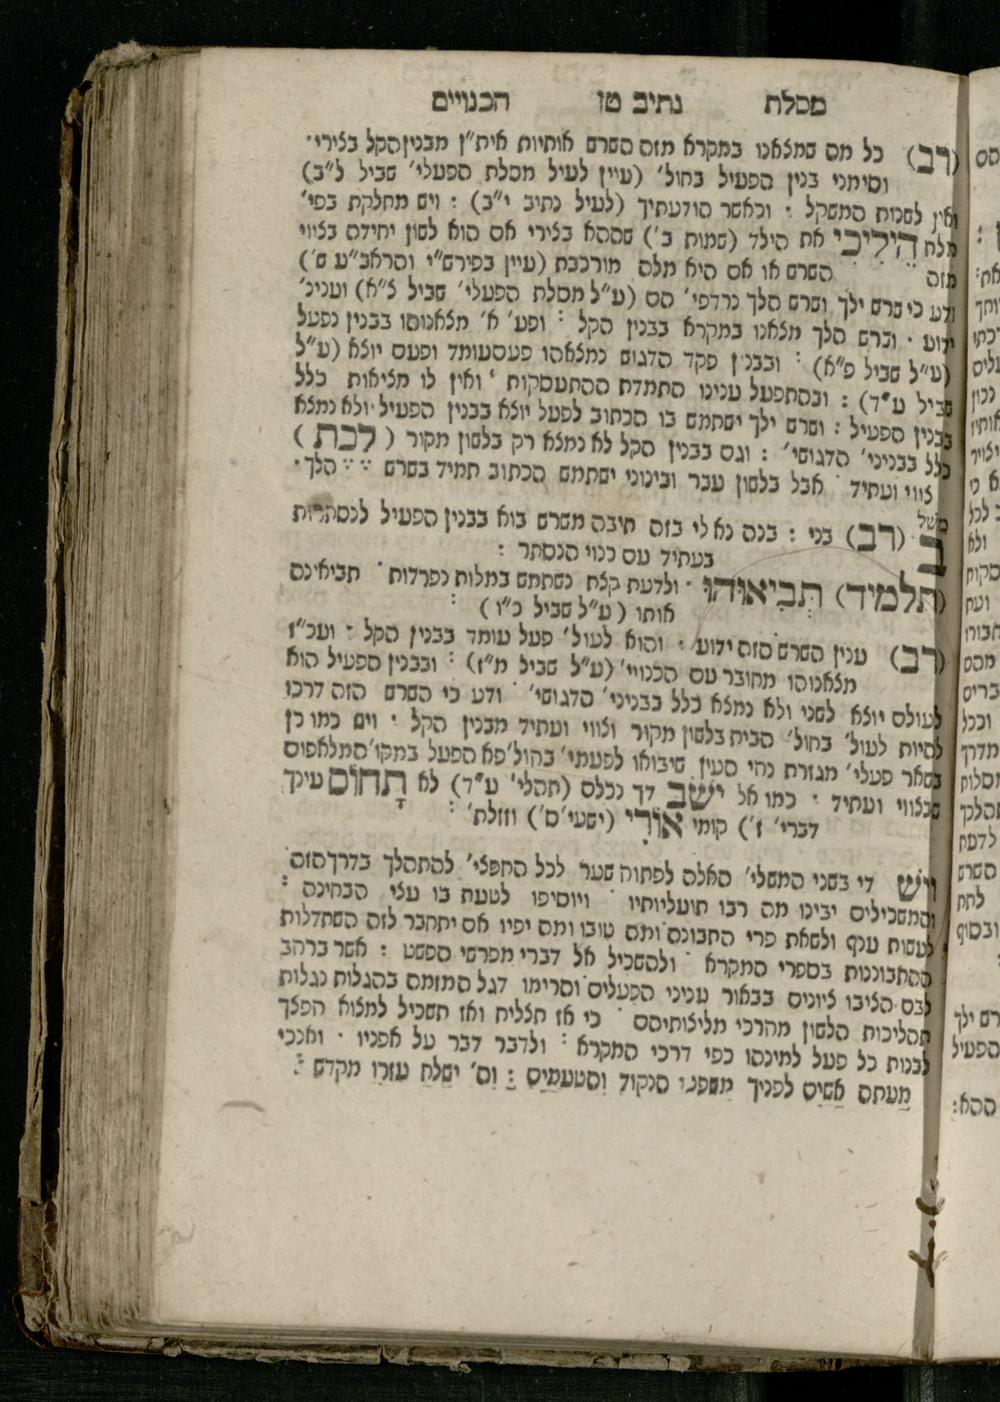 מסלת נתיב טז הכנויים
(רב) כל מה שמצאנו במקרא מזה השרש אותיות אית״ן מבנין הקל בצירי׳
וסימני בנין הפעיל בחול׳ (עיין לעיל מסלת הפעלי׳ שביל ל״ב)
ואין לשנות המשקל ׳ וכאשר הודעתיך (לעיל נתיב י״ב) : ויש מחלקת בפי׳
מלת הֵילִיכִי את הילד (שמות ב׳) שההא בצירי אם הוא לשון יחידה בציווי
מזה השרש או אם היא מלה מורכבת (עיין בפירש״י והראב״ע ש׳)
ודע כי שרש ילך ושרש הלך נרדפי׳ הם (ע״ל מסלת הפעלי׳ שביל ל״א) וענינ׳
ידוע ׳ ושרש הלך מצאנו במקרא בבנין הקל : ופע׳ א׳ מצאנוהו בבנין נפעל
(ע״ל שביל פ״א) : ובבנין פקד הדגוש נמצאהו פעם עומד ופעם יוצא (ע״ל
שביל ע״ד) : ובהתפעל ענינו התמדת ההתעסקות ׳ ואין לו מציאות כלל
בבנין הפעיל : ושרש ילך ישתמש בו הכתוב לפעל יוצא בבנין הפעיל ׳ ולא נמצא
כלל בבניני׳ הדגושי׳ : וגם בבנין הקל לא נמצא רק בלשון מקור (לכת)
צווי ועתיד ׳ אבל בלשון עבר ובינוני ישתמש הכתוב תמיד בשרש הלך ׳
משל
ב (רב) בני : בנה נא לי בזה תיבה משרש בוא בבנין הפעיל לנסתרות
בעתיד עם כנוי הנסתר :
(תלמיד) תְּבִיאוּהוּ ׳ ולדעת קצת נשתמש במלות נפרדות ׳ תביאינה
אותו (ע״ל שביל כ״ו) :
(רב) ענין השרש הזה ידוע ׳ והוא לעול׳ פעל עומד בבנין הקל ׳ ועכ״ז
מצאנוהו מחובר עם הכנויי׳ (ע״ל שביל מ״ז) : ובבנין הפעיל הוא
לעולם יוצא לשני ולא נמצא כלל בבניני׳ הדגושי׳ ׳ ודע כי השרש הזה דרכו
להיות לעול׳ בחול׳ הבית בלשון מקור וצווי ועתיד מבנין הקל ׳ ויש כמו כן
בשאר פעלי׳ מגזרת נחי העין שיבואו לפעמי׳ בחול׳ פא הפעל במקו׳ המלאפום
שבצווי ועתיד ׳ כמו אל יָשֹׁב דך נכלם (תהלי׳ ע״ד) לא תָחוֹס עינך
דברי׳ ז׳) קומי אוֹרִי (ישעי׳ ס׳) וזולת׳ :
ויש די בשני המשלי׳ האלה לפתוח שער לכל החפצי׳ להתהלך בדרך הזה
והמשכילים יבינו מה רבו תועליותיו ׳ ויוסיפו לטעת בו עצי הבחינה :
לעשות ענף ולשאת פרי התבונה ׳ ומה טובו ומה יפיו אם יתחבר לזה השתדלות
ההתבוננות בספרי המקרא ׳ ולהשכיל אל דברי מפרשי הפשט : אשר ברהב
לבם ׳ הציבו ציונים בבאור עניני הפעלים והרימו דגל המזמה בהגלות נגלות
תהליכות הלשון מהרכי מליצותיהם ׳ כי אז תצליח ואז תשכיל למצוא הפצך
לבנות כל פעל למינהו כפי דרכי המקרא : ולדבר דבר על אפניו ׳ ואנכי
מעתה אשים לפניך משפטי הנקוד והטעמים : וה׳ ישלח עזרו מקדש :